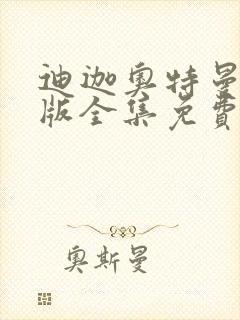 迪迦奥特曼
版全集免費
奥斯曼